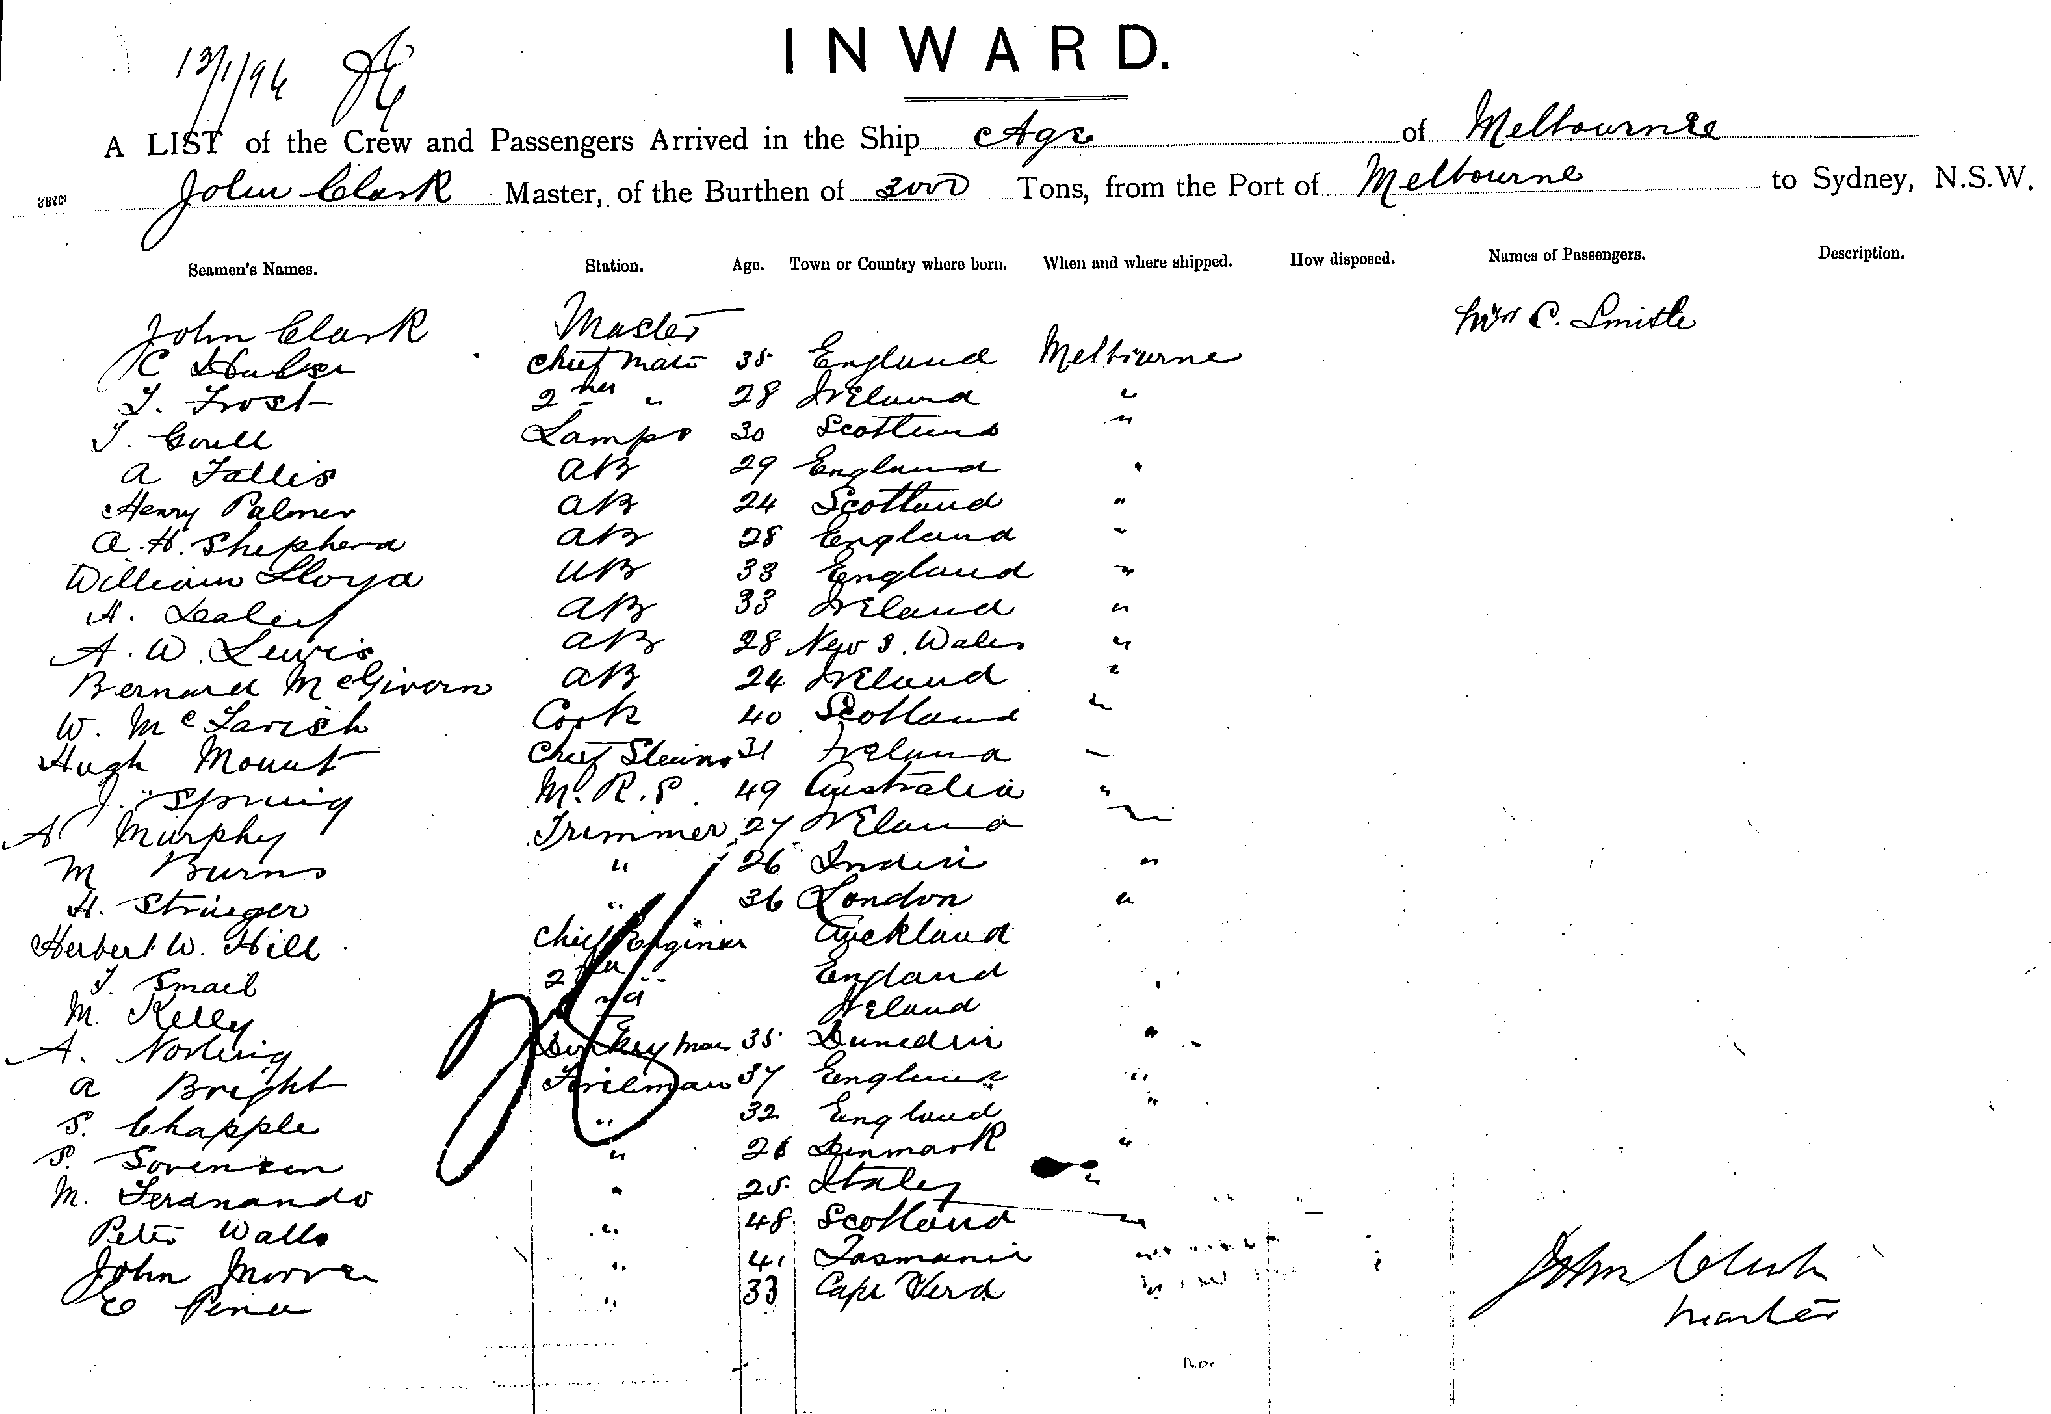 INWARD.
13/1/96
A LIST of the Crew and Passengers Arrived in the Ship Age of Melbourne
John Clark Master, of the Burthen of 2000 Tons, from the Port of Melbourne to Sydney, N.S.W.
Seamen's Names. Station. Age. Town or Country where born. When and where shipped. How disposed. Names of Passengers. Description.
John Clark Master Mrs C. Smith
C Chief Mate 35 England Melbourne
T. Frost 2nd " 28 Ireland "
T. Gould Lamps 30 Scotland "
A Fallis AB 29 England "
Henry Palmer AB 24 Scotland "
A. H. Shepherd AB 28 England "
William Lloyd AB 33 England "
H. Dealey AB 33 Ireland "
A. W. Lewis AB 28 New S. Wales "
Bernard McGivern AB 24 Ireland "
W. McTavish Cook 40 Scotland "
Hugh Mount Chief 31 Ireland "
J. Spruing M.R.S. 49 Australia "
A Murphy Trimmer 27 Ireland "
M Burns " 26 India "
H. Strieger " 36 London "
Herbert W. Hill Chief Engineer Auckland
T. Smail 2nd " England
M. Kelly Ireland
A. Norling Donkeyman 35 Dunedin "
A Bright Fireman 37 England "
S. Chapple " 32 England "
P. Sorensen " 26 Denmark "
M. Ferdnando " 25 Italy "
Peter Walls " 48 Scotland "
John " 41 Tasmania
C Pena " 33 Cape Verd
John Clark
Master